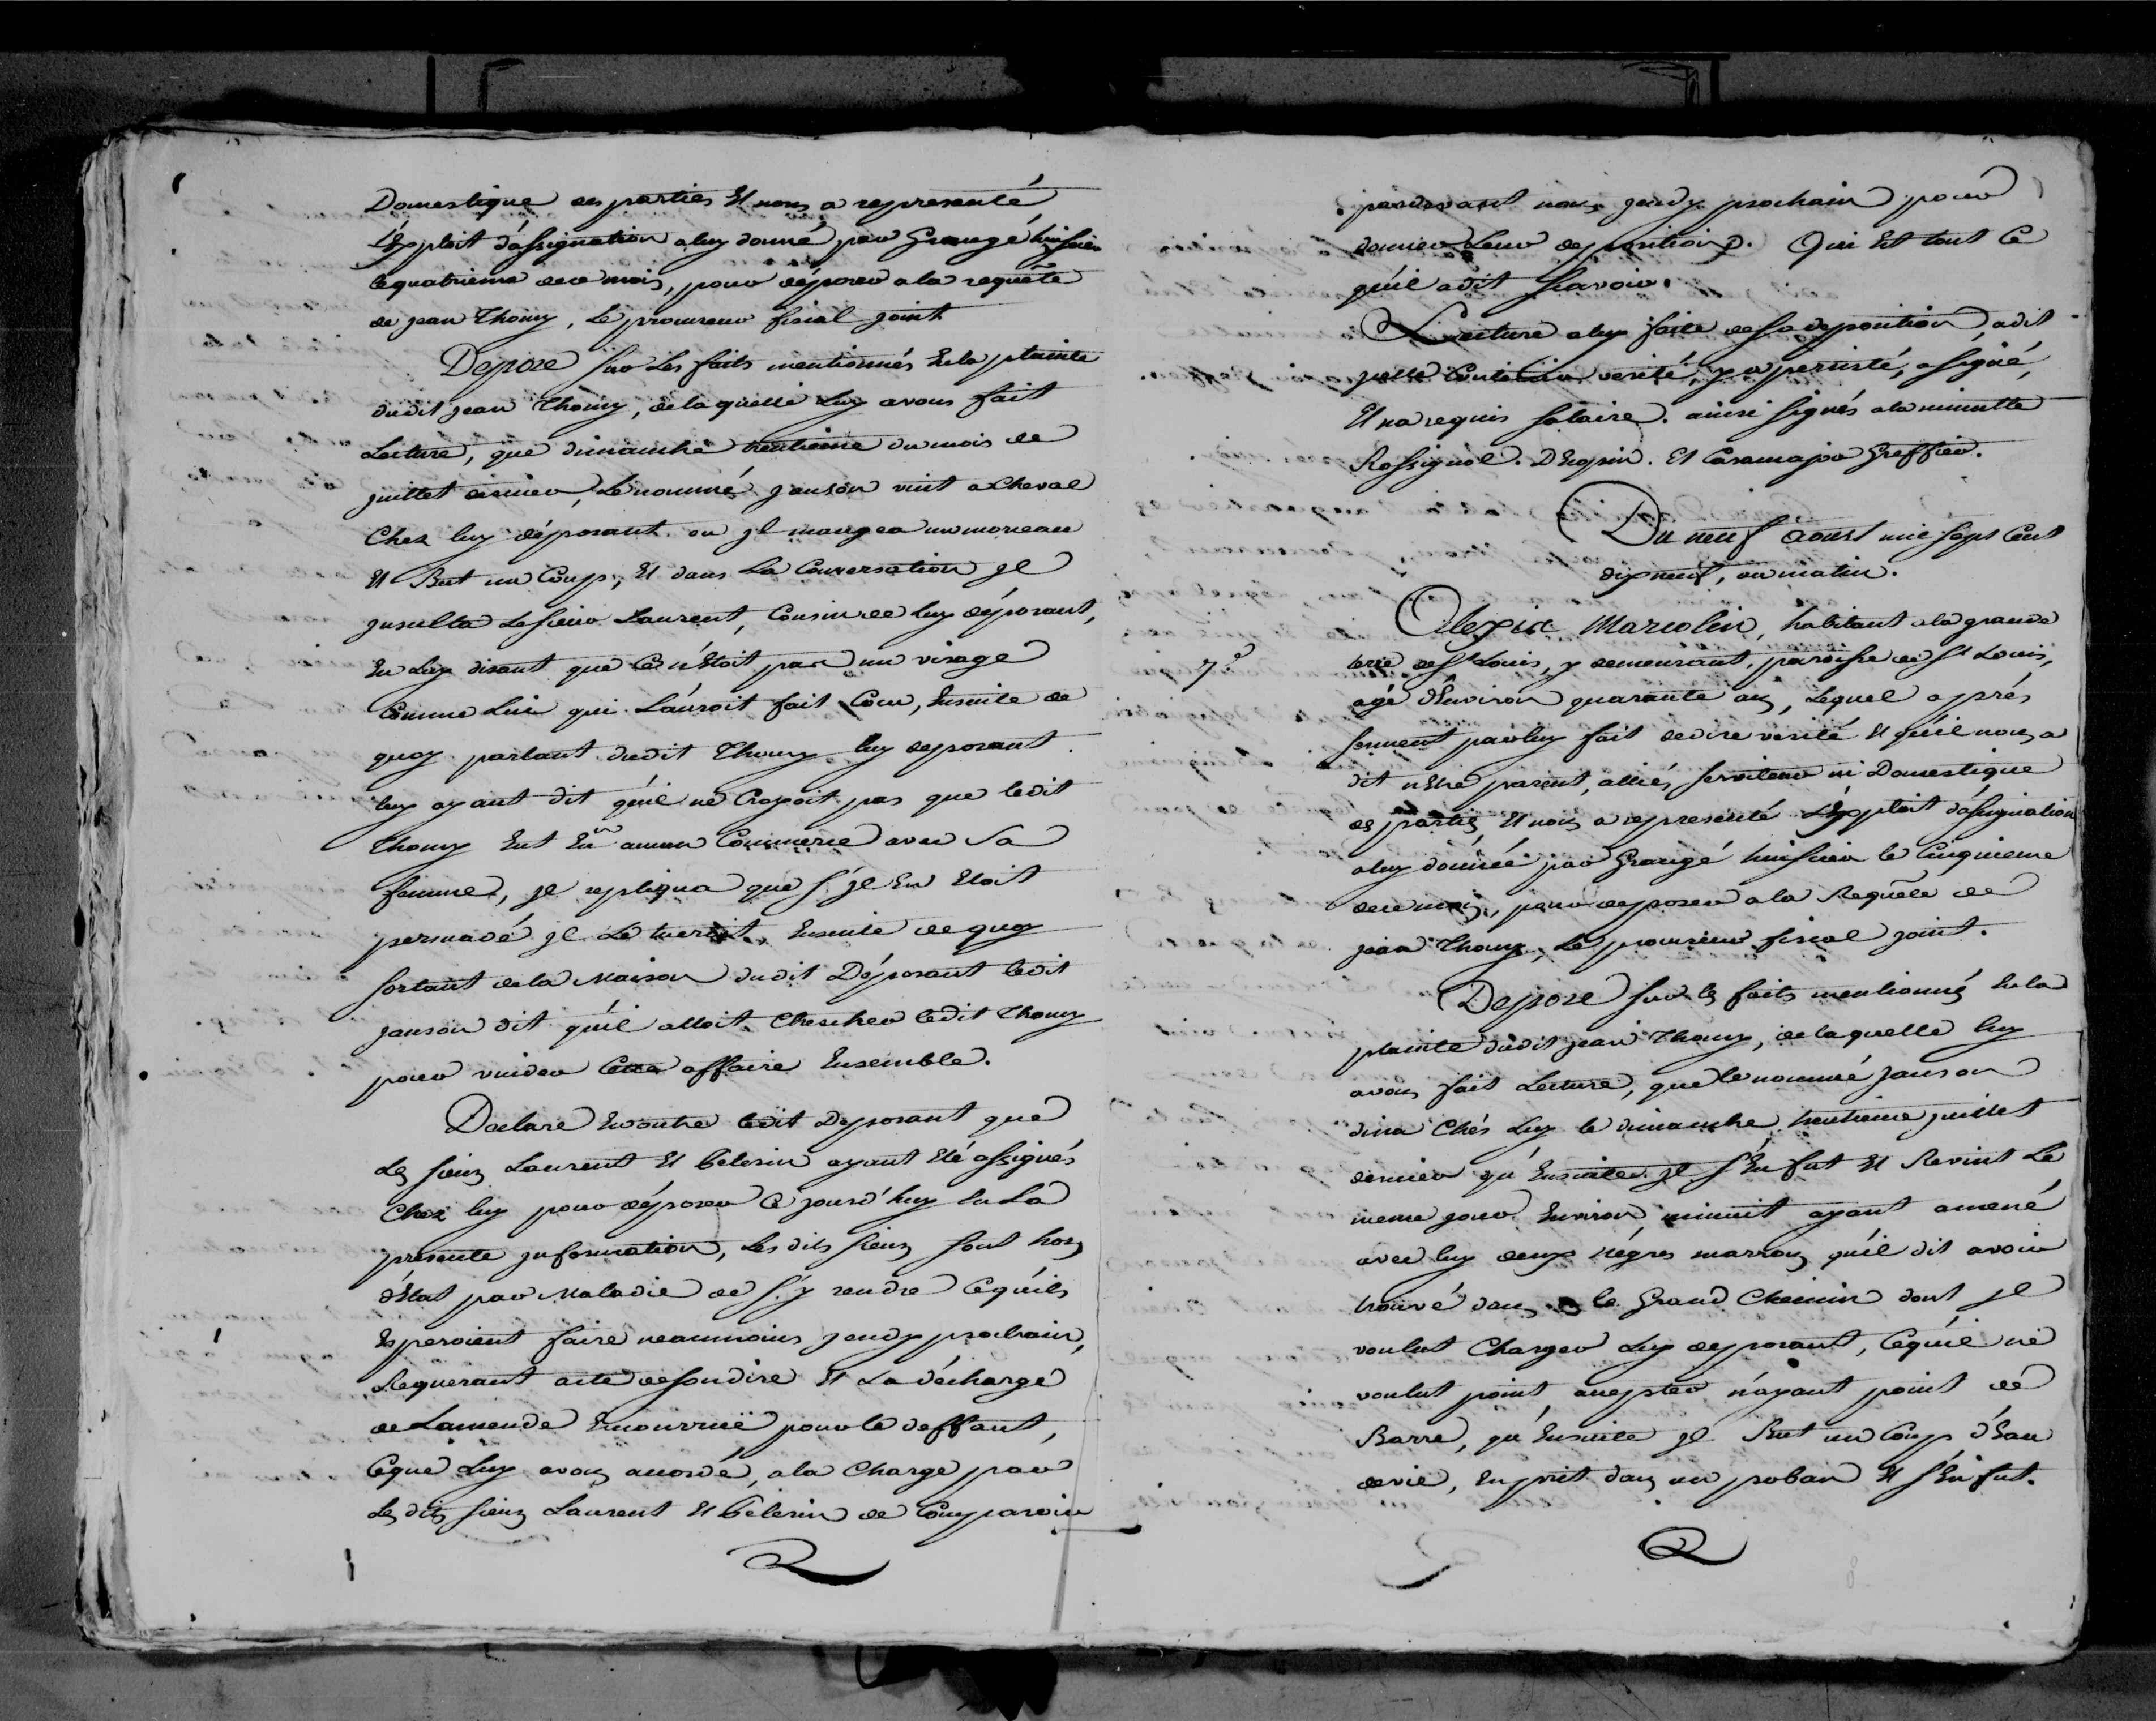 Domestique des parties Et nous a representé
L'Exploit d'assignation aluy donné par Grangé huissier
le quatrieme de ce mois, pour déposer a la requête
de jean Thomy, Le procureur fiscal joint.
Depose sur Les faits mentionnés En la plainte
dudit jean Thomy, de laquelle Luy avons fait
Lecture, que dimanche trentieme du mois de
juillet dernier, Le nommé janson vint a Cheval
Chez luy déposant ou jl mangea un morceau
Et But un Coup, Et dans La Conversation jl
jnsulta Le sieur Laurent, Cousin de luy déposant,
En Luy disant que Ce n'Etoit pas un visage
Comme Lui qui L'auroit fait Cocu, Ensuite de
quoy parlant dudit Thomy luy deposant
luy ayant dit qu'il ne Croyoit pas que ledit
Thomy Eut Eu aucun Commerce avec Sa
femme, jl repliqua que s'jl En Etoit
persuadé jl Le tueroit, Ensuite de quoy
sortant de la Maison dudit Déposant ledit
janson dit qu'il alloit Chercher ledit Thomy
pour vuider Cette affaire Ensemble.
Declare En outre ledit Deposant que
Les sieurs Laurent Et Celerin ayant Eté assignés
Chez luy pour déposer Ce jourd'huy En La
presente jnformation, Les dits sieurs sont hors
d'Etat par Maladie de s'y rendre Ce qu'ils
Esperoient faire neanmoins jeudy prochain,
Requerant acte de son dire Et La décharge
de Lamende Encourrüe pour le deffaut,
Ce que Luy avons accordé, a la Charge par
Les dits sieurs Laurent Et Celerin de Comparoir
pardevant nous jeudy prochain pour
donner Leur deposition. Qui Est tout Ce
qu'il a dit sçavoir.
Lecture aluy faite de sa deposition, a dit
qu'elle Contient verité, y a persisté, a signé,
Et na requis salaire. ainsi signés a la minutte
Rossignol. Et Casamajor Greffier.
Du neuf aoust mil sept Cent
dix neuf, au matin.
7e
Alexis Marcolin, habitant a la grande
terre de St Louis, y demeurant, paroisse de St Louis,
agé d'Environ quarante ans, Lequel aprés
serment par luy fait de dire verité Et qu'il nous a
dit n'Etre parent, alliés, serviteur ni Domestique
des parties, Et nous a representé L'Exploit d'assignation
aluy donnée par Grangé huissier le Cinquieme
de ce mois, pour deposer a la Requête de
jean Thomy, Le procureur fiscal joint.
Depose sur les faits mentionnés En la
plainte dudit jean Thomy, de laquelle luy
avons fait Lecture, que le nommé janson
dina Chés Luy le dimanche trentieme juillet
dernier qu'Ensuite jl s'En fut Et Revint Le
meme jour Environ minuit ayant amené
avec luy deux négres marrons qu'il dit avoir
trouvé dans le Grand Chemin dont jl
voulut Charger Luy deposant, Ce qu'il ne
voulut point accepter n'ayant point de
Barre, qu'Ensuite jl But un Coup d'Eau
de vie, En prit dans un poban Et s'En fut.